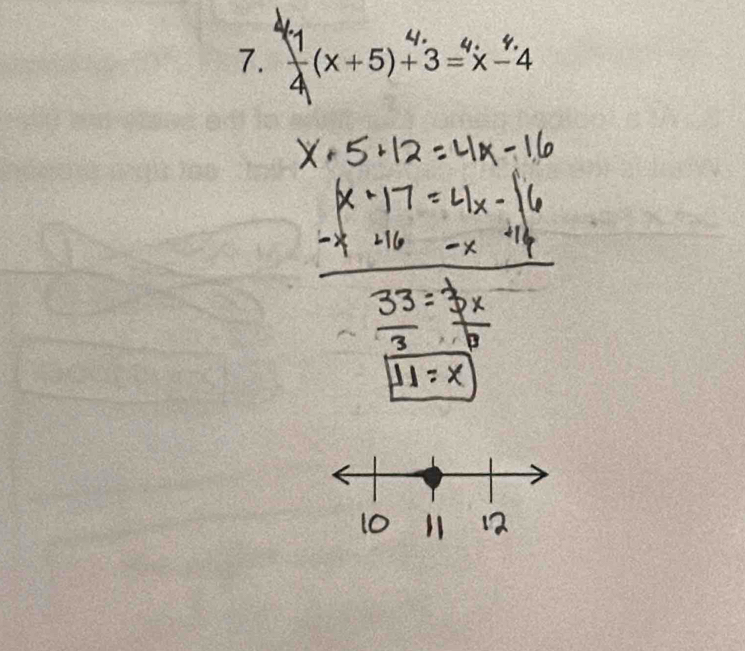 7. 4· 1/4 (x + 5) 4· + 3 = 4· x 4· − 4
x + 5 + 12 = 4x − 16
x + 17 = 4x − 16
−x +16 −x +16
33 = 3x
3 3
11 = x
10 11 12